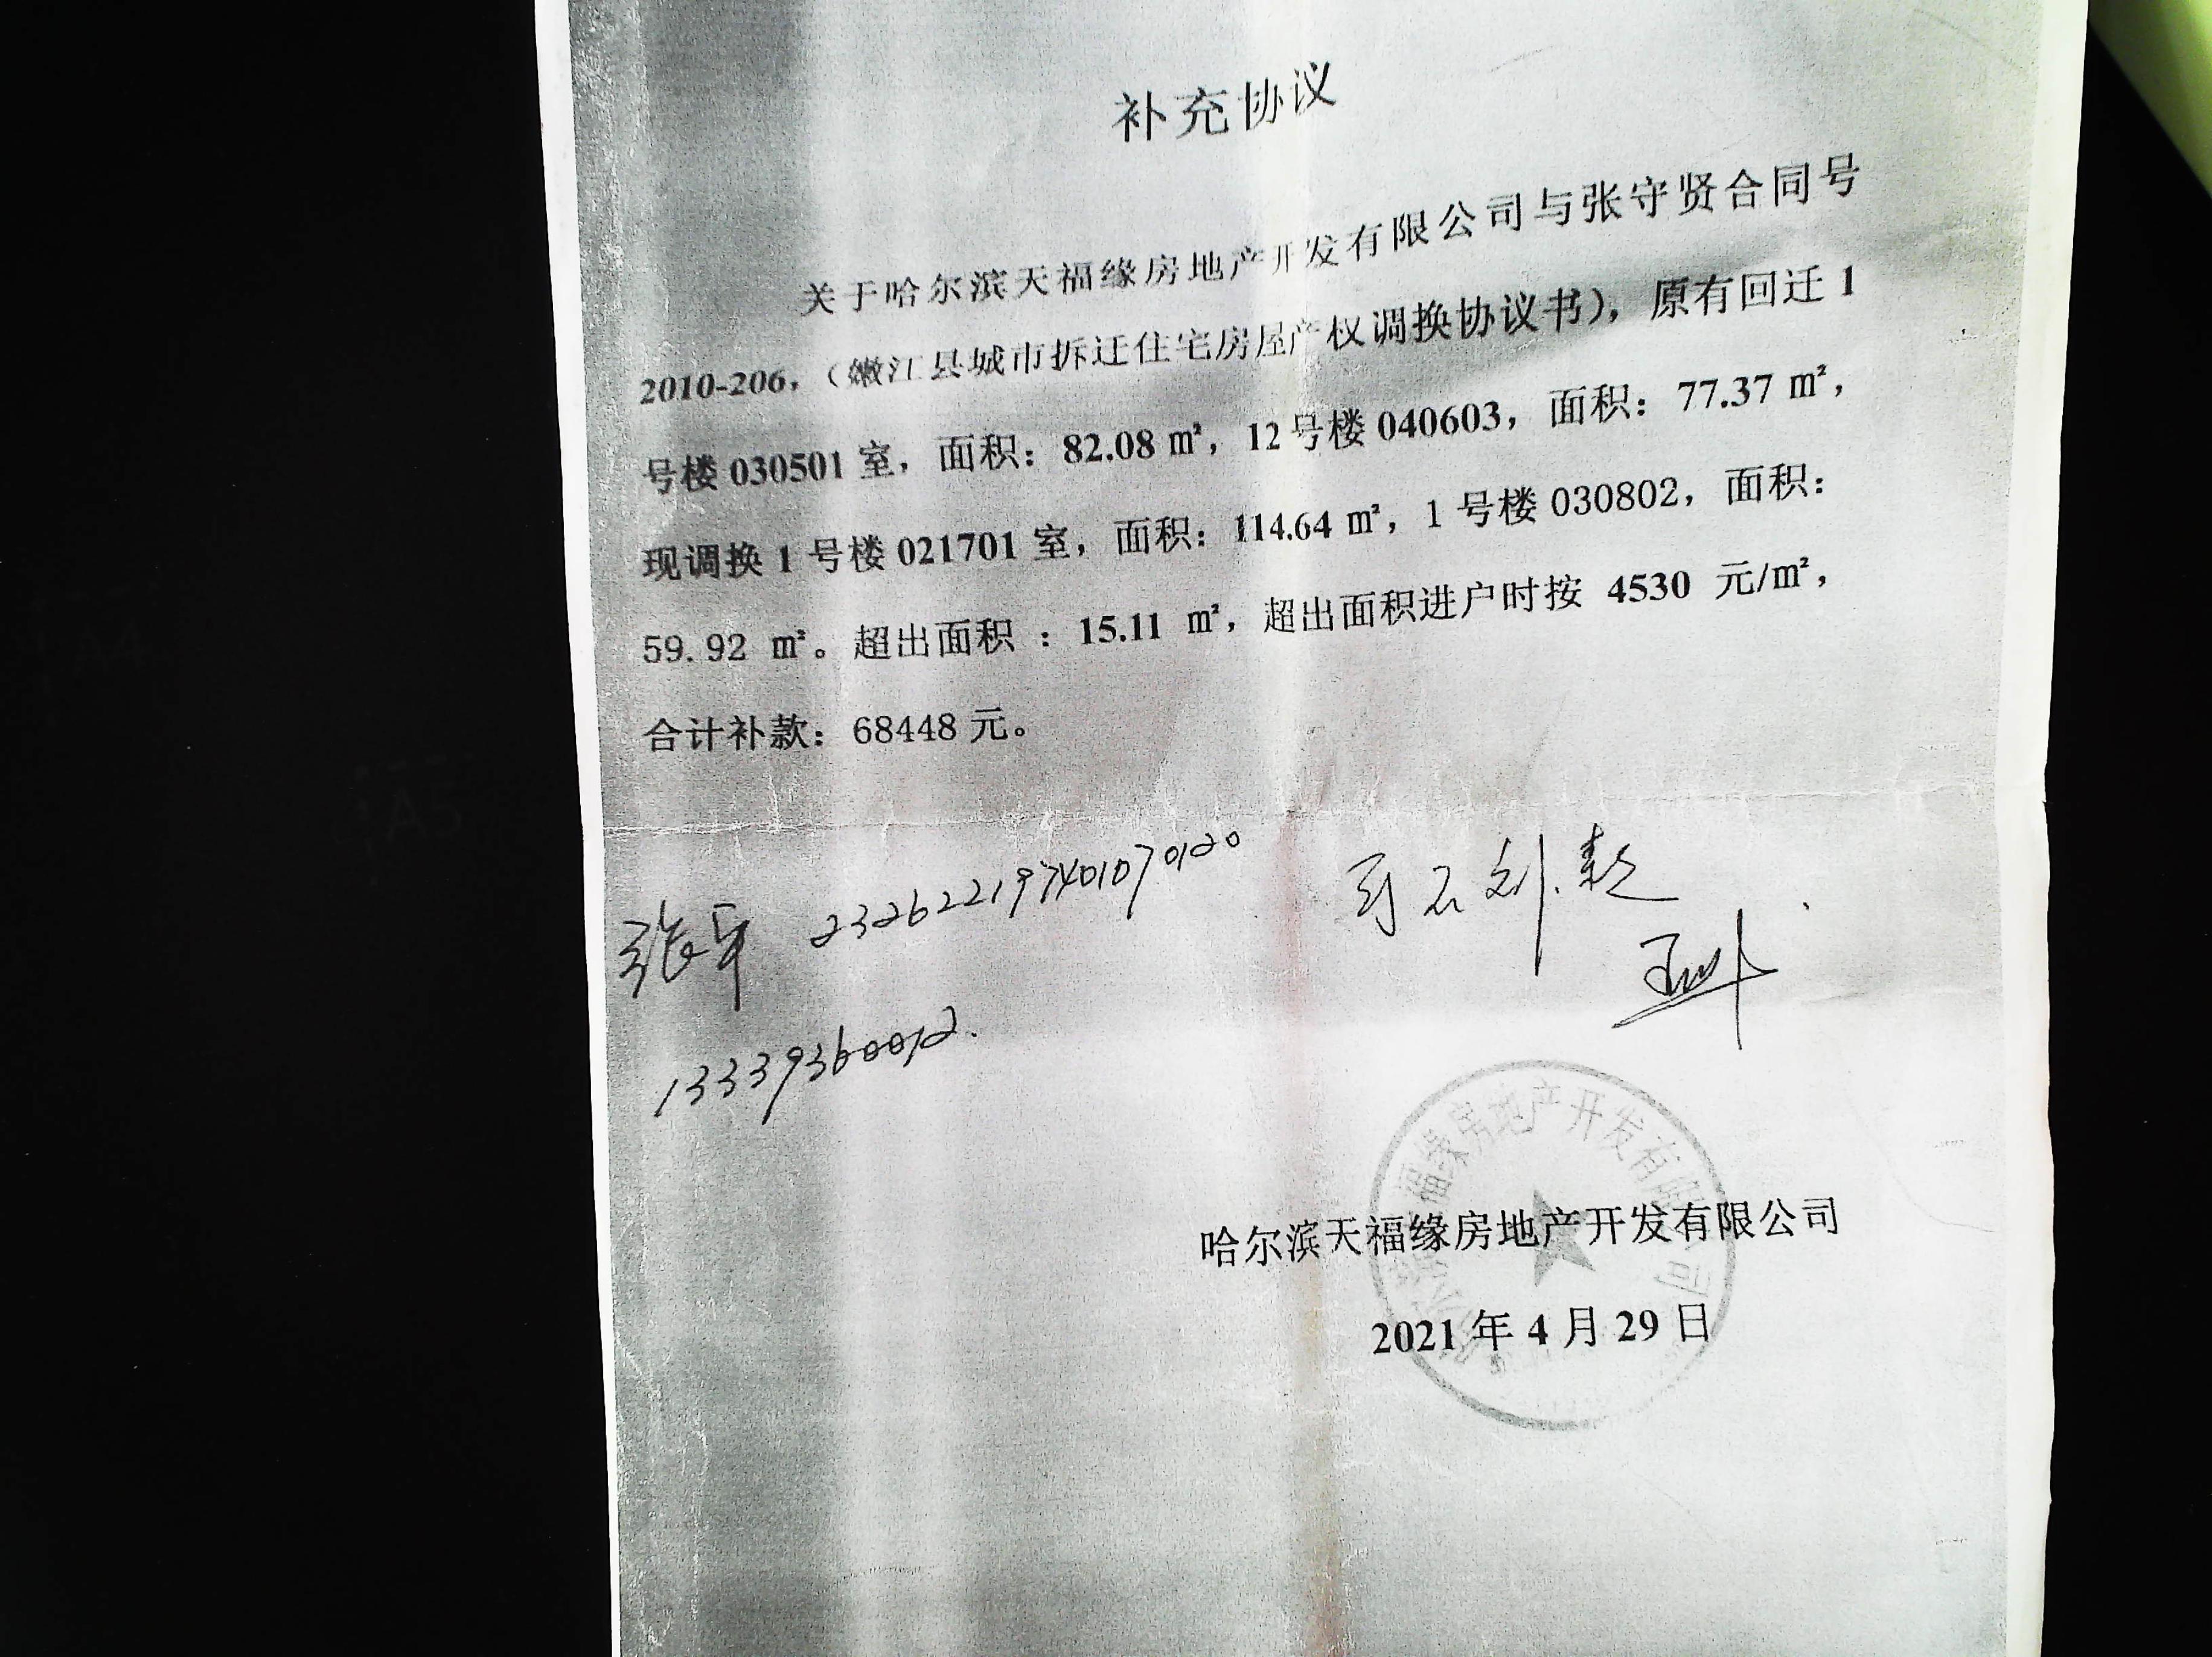 补充协议
关于哈尔滨天福缘房地产开发有限公司与张守贤合同号
2010-206，（嫩江县城市拆迁住宅房屋产权调换协议书），原有回迁 1
号楼 030501 室，面积：82.08 ㎡，12 号楼 040603，面积：77.37 ㎡，
现调换 1 号楼 021701 室，面积：114.64 ㎡，1 号楼 030802，面积：
59.92 ㎡。超出面积 ：15.11 ㎡，超出面积进户时按 4530 元/㎡，
合计补款：68448 元。
232622197401070120
13339360072.
福缘房地产开发有限 司
哈尔滨天福缘房地产开发有限公司
2021 年 4 月 29 日
A4
A5